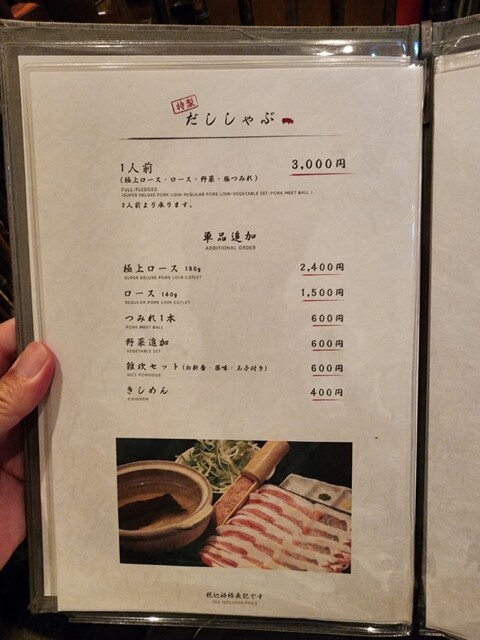 特製
だししゃぶ
1人前 3,000円
(極上ロース・ロース・野菜・豚つみれ)
FULL-FLEDGED
(SUPER DELUXE PORK LOIN・REGULAR PORK LOIN・VEGETABLE SET・PORK MEET BALL)
2人前より承ります。
単品追加
ADDITIONAL ORDER
極上ロース 180g 2,400円
SUPER DELUXE PORK LOIN CUTLET
ロース 140g 1,500円
REGULAR PORK LOIN CUTLET
つみれ1本 600円
PORK MEET BALL
野菜追加 600円
VEGETABLE SET
雑炊セット(お新香・薬味・玉子付き) 600円
RICE PORRIDGE
きしめん 400円
KISHIMEN
税込価格表記です
TAX INCLUSIVE PRICE